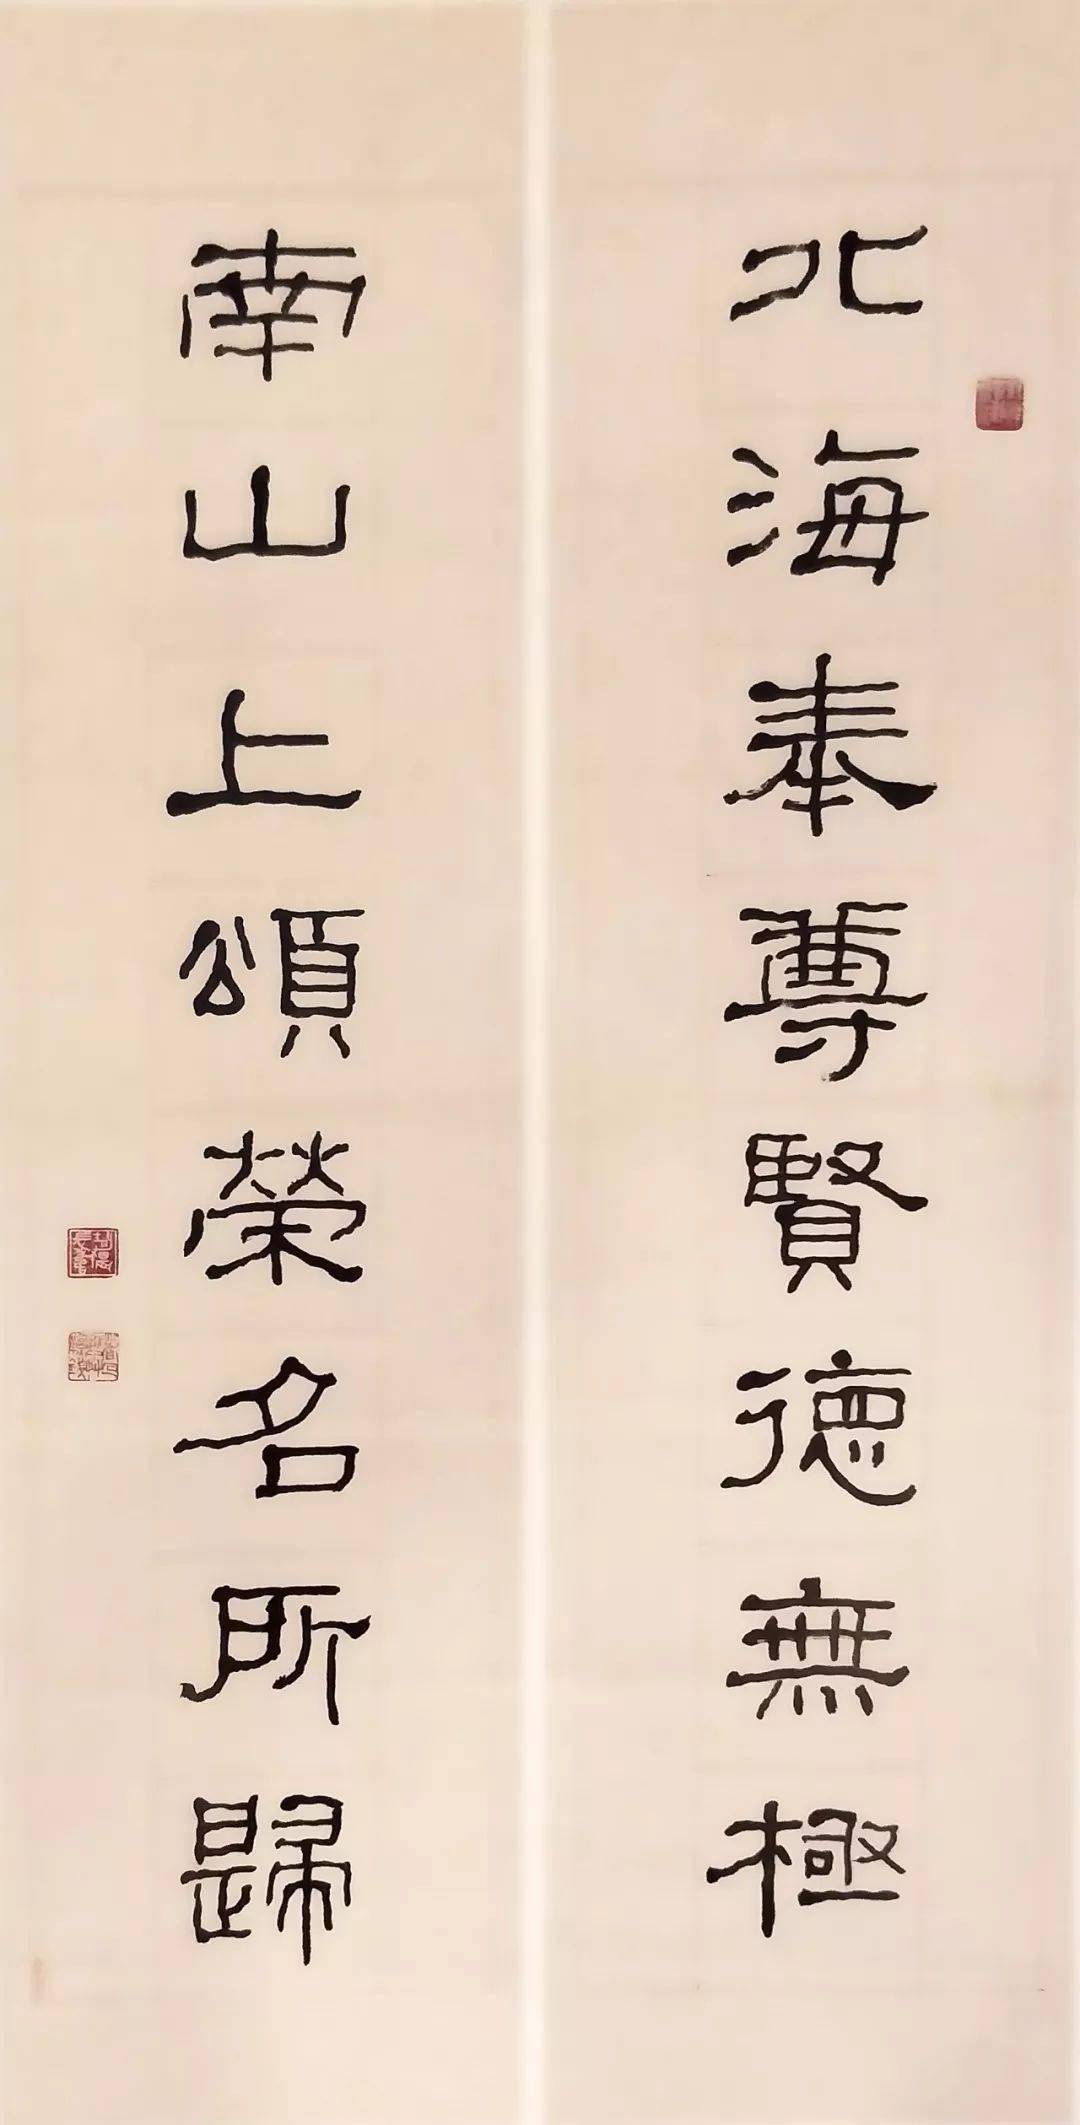 北海奉尊賢德無極
南山上頌榮名所歸